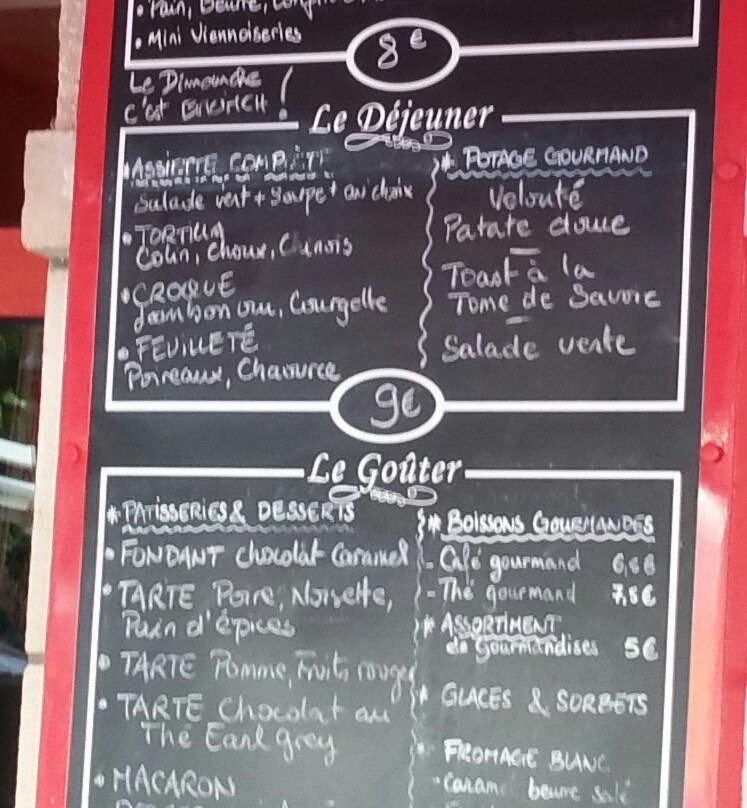 • Pain, Beurre,
• Mini Viennoiseries
8€
Le Dimanche
c'est BRUNCH !
Le Déjeuner
*ASSIETTE COMPLÈTE
Salade vert + Soupe + au choix
• TORTILLA
Colin, Choux, Chinois
• CROQUE
Jambon cru, Courgette
• FEUILLETÉ
Poireaux, Chaource
* POTAGE GOURMAND
Velouté
Patate douce
—
Toast à la
Tome de Savoie
—
Salade verte
9€
Le Goûter
* PATISSERIES & DESSERTS
• FONDANT Chocolat Caramel
• TARTE Poire, Noisette,
Pain d'épices
• TARTE Pomme, Fruits rouges
• TARTE Chocolat au
Thé Earl grey
• MACARON
* BOISSONS GOURMANDES
- Café gourmand 6,5€
- Thé gourmand 7,5€
* ASSORTIMENT
de Gourmandises 5€
* GLACES & SORBETS
* FROMAGE BLANC
- Caramel beurre salé